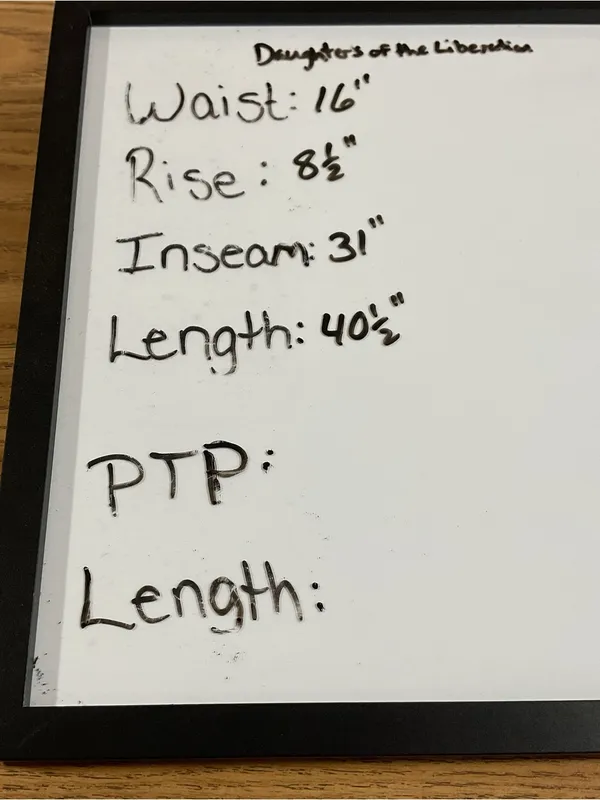 Daughters of the Liberation
Waist: 16"
Rise: 8½"
Inseam: 31"
Length: 40½"
PTP:
Length: